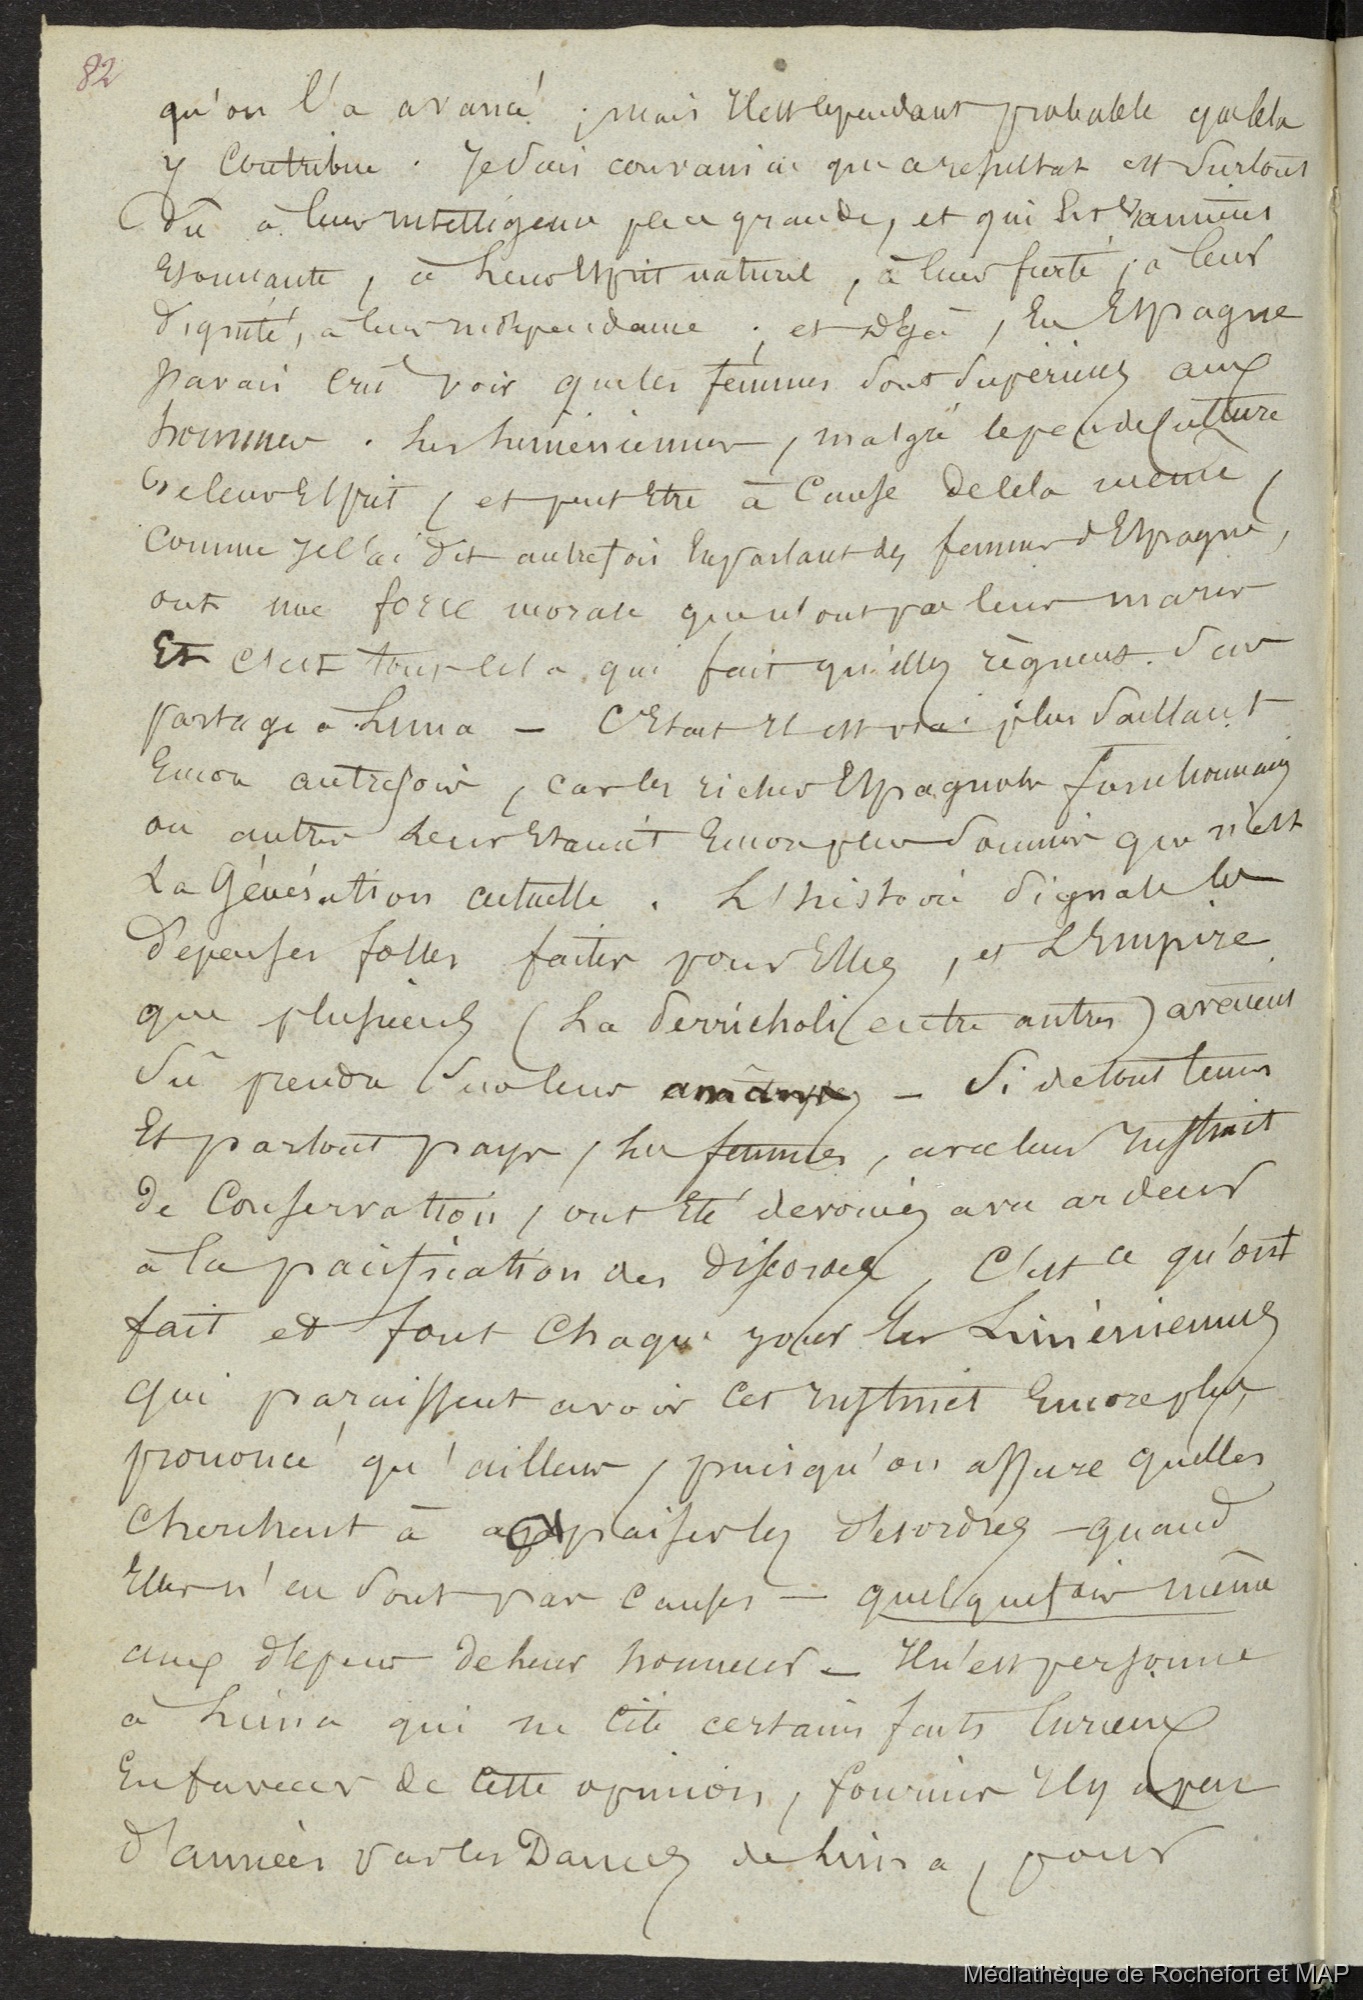 82
qu'on l'a avancé ; mais Il est cependant probable que cela
y Contribue . Je suis convaincu que ce résultat est Surtout
dû à leur intelligence plus grande, et qui les
Etonnante, à Leur Esprit naturel, à leur fierté, à leur
dignité, à leur indépendance ; et Déjà, En Espagne
J'avais Crû voir que les femmes sont supérieures aux
hommes . Les Liméniennes, malgré le peu de Culture
de leur Esprit, et peut Etre à Cause de cela même,
Comme Je l'ai dit autrefois En parlant des femmes d'Espagne,
ont une force morale que n'ont pas leurs maris
Et c'est tout cela qui fait qu'elles règnent sans
partage à Lima — C'Etait Il est vrai plus saillant
Encore autrefois, car les riches Espagnols fonctionnaires
ou autres Leur Etaient Encore plus soumis que n'est
La Génération actuelle . L'histoire signale les
dépenses folles faites pour Elles, et L'Empire
que plusieurs (La Perricholi entre autres) avaient
sû prendre sur leurs — Si de tout tems
Et partout pays, les femmes, avec leur Instinct
de Conservation, ont Eté dévouées avec ardeur
à la pacification des discordes, C'est ce qu'ont
fait et font Chaque jour les Liméniennes
qui paraissent avoir Cet Instinct Encore plus
prononcé qu'ailleurs, puisqu'on assure qu'elles
Cherchent à appaiser les désordres — quand
Elles n'en sont pas Causes — quelquefois même
aux dépens de Leur honneur — Il n'est personne
à Lima qui ne Cite certains faits Curieux
En faveur de Cette opinion, fournis Il y a peu
d'années par les Dames de Lima, pour
Médiathèque de Rochefort et MAP